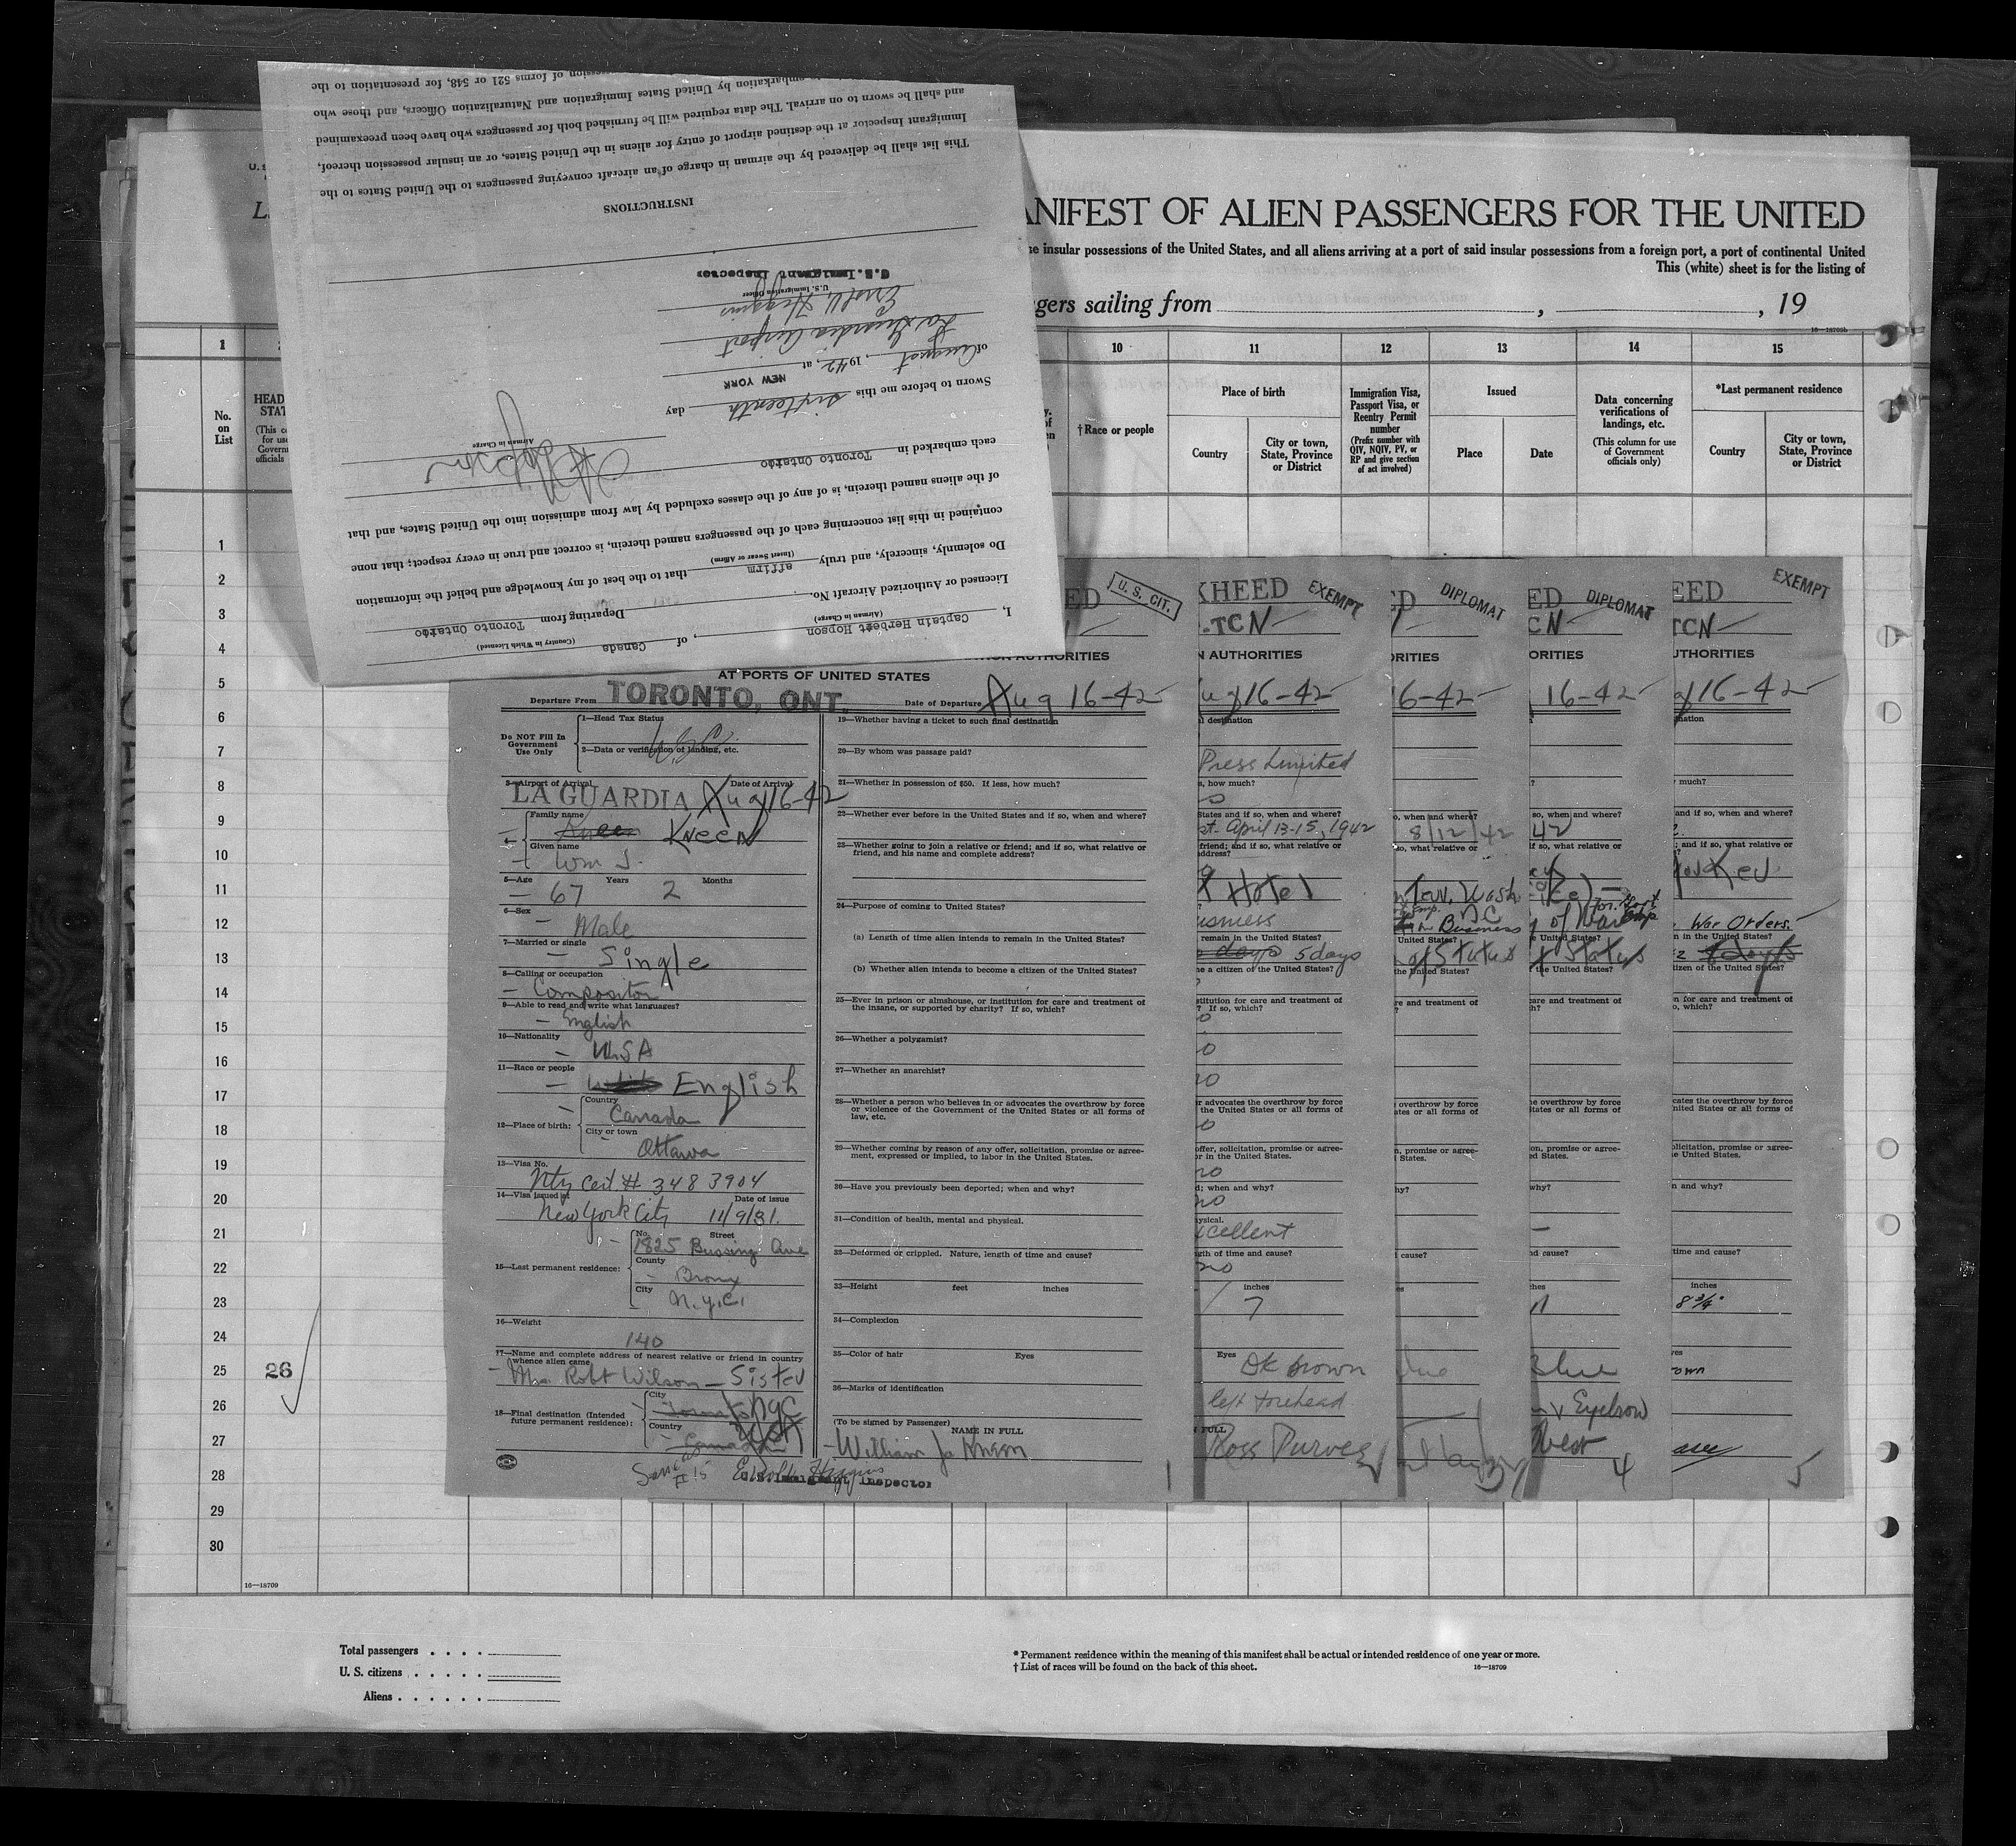 ANIFEST OF ALIEN PASSENGERS FOR THE UNITED
se insular possessions of the United States, and all aliens arriving at a port of said insular possessions from a foreign port, a port of continental United
This (white) sheet is for the listing of
gers sailing from , , 19
1 10 11 12 13 14 15
No. on List
HEAD
STAT
†Race or people
Place of birth
Country
City or town, State, Province or District
Immigration Visa, Passport Visa, or Reentry Permit number
(Prefix number with QIV, NQIV, PV, or RP and give section of act involved)
Issued
Place
Date
Data concerning verifications of landings, etc.
(This column for use of Government officials only)
*Last permanent residence
Country
City or town, State, Province or District
I, Captain Herbert Hopson, of Canada
(Airman in Charge) (Country in Which Licensed)
Licensed or Authorized Aircraft No. Departing from Toronto Ontario
Do solemnly, sincerely, and truly affirm that to the best of my knowledge and belief the information
(Insert Swear or Affirm)
contained in this list concerning each of the passengers named therein, is correct and true in every respect; that none
of the aliens named therein, is of any of the classes excluded by law from admission into the United States, and that
each embarked in Toronto Ontario
Airman in Charge
Sworn to before me this sixteenth day
of August, 1942, at NEW YORK
La Guardia Airport
U.S. Immigration Officer
U.S. Immigrant Inspector
INSTRUCTIONS
This list shall be delivered by the airman in charge of an aircraft conveying passengers to the United States to the
Immigrant Inspector at the destined airport of entry for aliens in the United States, or an insular possession thereof,
and shall be sworn to on arrival. The data required will be furnished both for passengers who have been preexamined
embarkation by United States Immigration and Naturalization Officers, and those who
ssion of forms 521 or 548, for presentation to the
ED U. S. CIT.
AT PORTS OF UNITED STATES
Departure From TORONTO, ONT. Date of Departure Aug 16-42
Do NOT Fill In Government Use Only
1—Head Tax Status
2—Data or verification of landing, etc.
3—Airport of Arrival Date of Arrival
LA GUARDIA Aug 16-42
4— Family name KNEEN
Given name Wm J.
5—Age 67 Years 2 Months
6—Sex Male
7—Married or single Single
8—Calling or occupation
Compositor
9—Able to read and write what languages?
English
10—Nationality USA
11—Race or people English
12—Place of birth: Country Canada
City or town Ottawa
13—Visa No. Ntz Cert # 348 3904
14—Visa issued at Date of issue
New York City 11/9/31.
15—Last permanent residence: No. Street 1825 Bussing Ave
County Bronx
City N.Y.C.
16—Weight 140
17—Name and complete address of nearest relative or friend in country whence alien came
Mrs. Robt Wilson — Sister
18—Final destination (Intended future permanent residence): City NYC
Country
Same as #15
U.S. Immigrant Inspector
19—Whether having a ticket to such final destination
20—By whom was passage paid?
21—Whether in possession of $50. If less, how much?
22—Whether ever before in the United States and if so, when and where?
23—Whether going to join a relative or friend; and if so, what relative or friend, and his name and complete address?
24—Purpose of coming to United States?
(a) Length of time alien intends to remain in the United States?
(b) Whether alien intends to become a citizen of the United States?
25—Ever in prison or almshouse, or institution for care and treatment of the insane, or supported by charity? If so, which?
26—Whether a polygamist?
27—Whether an anarchist?
28—Whether a person who believes in or advocates the overthrow by force or violence of the Government of the United States or all forms of law, etc.
29—Whether coming by reason of any offer, solicitation, promise or agreement, expressed or implied, to labor in the United States.
30—Have you previously been deported; when and why?
31—Condition of health, mental and physical.
32—Deformed or crippled. Nature, length of time and cause?
33—Height feet inches
34—Complexion
35—Color of hair Eyes
36—Marks of identification
(To be signed by Passenger) NAME IN FULL
William J. Kneen
1
KHEED EXEMPT
-TCN
N AUTHORITIES
ug 16-42
Press Limited
April 13-15, 1942
Hotel
5 days
no
xcellent
no
inches
7
Eyes DK Brown
left forehead
Ross Purves
DIPLOMAT
ORITIES
6-42
8/12/42
Wash
DC
Business
of Status
ED DIPLOMAT
CN
ORITIES
16-42
42
of War
Status
11
Blue
Eyebrow
West
4
EED EXEMPT
TCN
UTHORITIES
16-42
War Orders.
inches
8 3/4
own
5
1
2
3
4
5
6
7
8
9
10
11
12
13
14
15
16
17
18
19
20
21
22
23
24
25 26
26
27
28
29
30
16—18709
Total passengers
U. S. citizens
Aliens
* Permanent residence within the meaning of this manifest shall be actual or intended residence of one year or more.
† List of races will be found on the back of this sheet.
16—18709